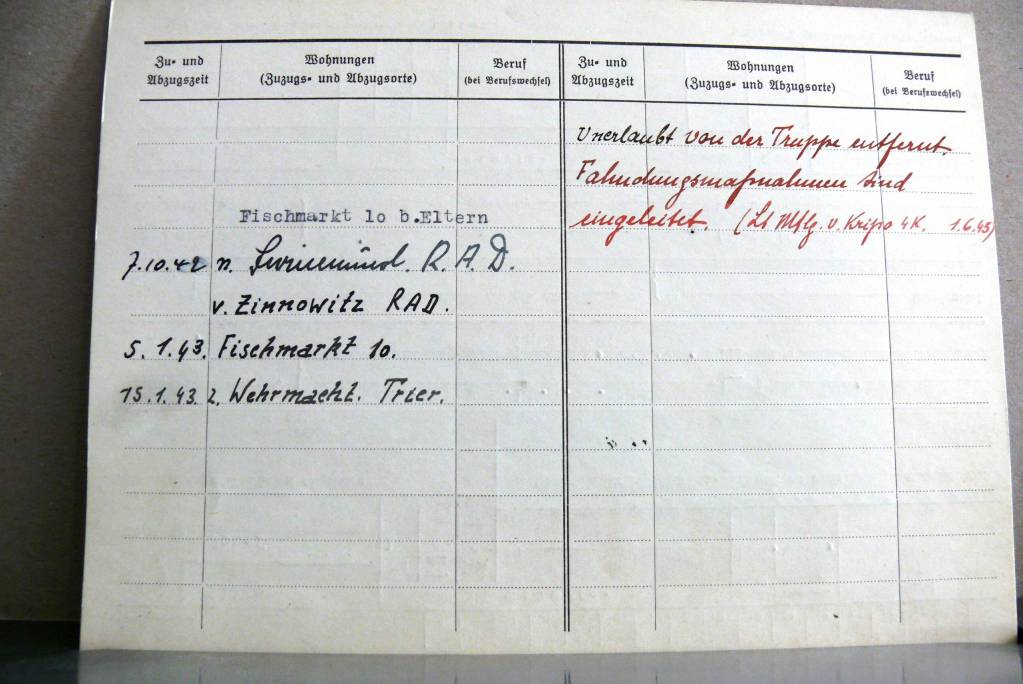 Zu- und Abzugszeit
Wohnungen
(Zuzugs- und Abzugsorte)
Beruf
(bei Berufswechsel)
Fischmarkt 1o b.Eltern
7.10.42 n. Swinemünd. R.A.D.
v. Zinnowitz RAD.
5. 1.43. Fischmarkt 10.
15.1.43. z. Wehrmacht. Trier.
Zu- und Abzugszeit
Wohnungen
(Zuzugs- und Abzugsorte)
Beruf
(bei Berufswechsel)
Unerlaubt von der Truppe entfernt.
Fahndungsmaßnahmen sind
eingeleitet. (Lt Mtlg. v. Kripo 4K. 1.6.43)